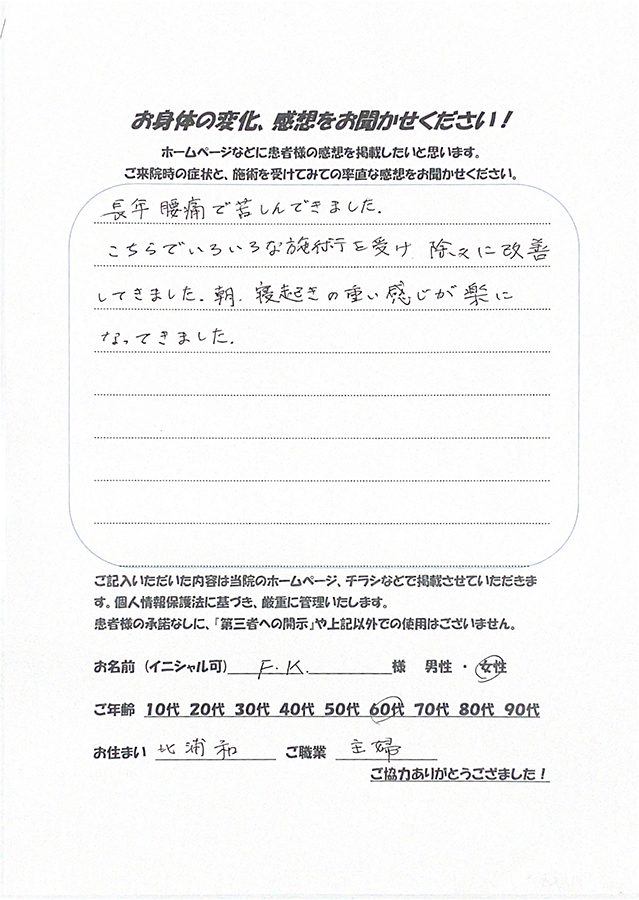 お身体の変化、感想をお聞かせください！
ホームページなどに患者様の感想を掲載したいと思います。
ご来院時の症状と、施術を受けてみての率直な感想をお聞かせください。
長年腰痛で苦しんできました.
こちらでいろいろな施術を受け 除々に改善
してきました.朝.寝起きの重い感じが楽に
なってきました.
ご記入いただいた内容は当院のホームページ、チラシなどで掲載させていただきま
す。個人情報保護法に基づき、厳重に管理いたします。
患者様の承諾なしに、「第三者への開示」や上記以外での使用はございません。
お名前（イニシャル可） F.K. 様 男性・女性
ご年齢 10代 20代 30代 40代 50代 60代 70代 80代 90代
お住まい 北浦和 ご職業 主婦
ご協力ありがとうござました！